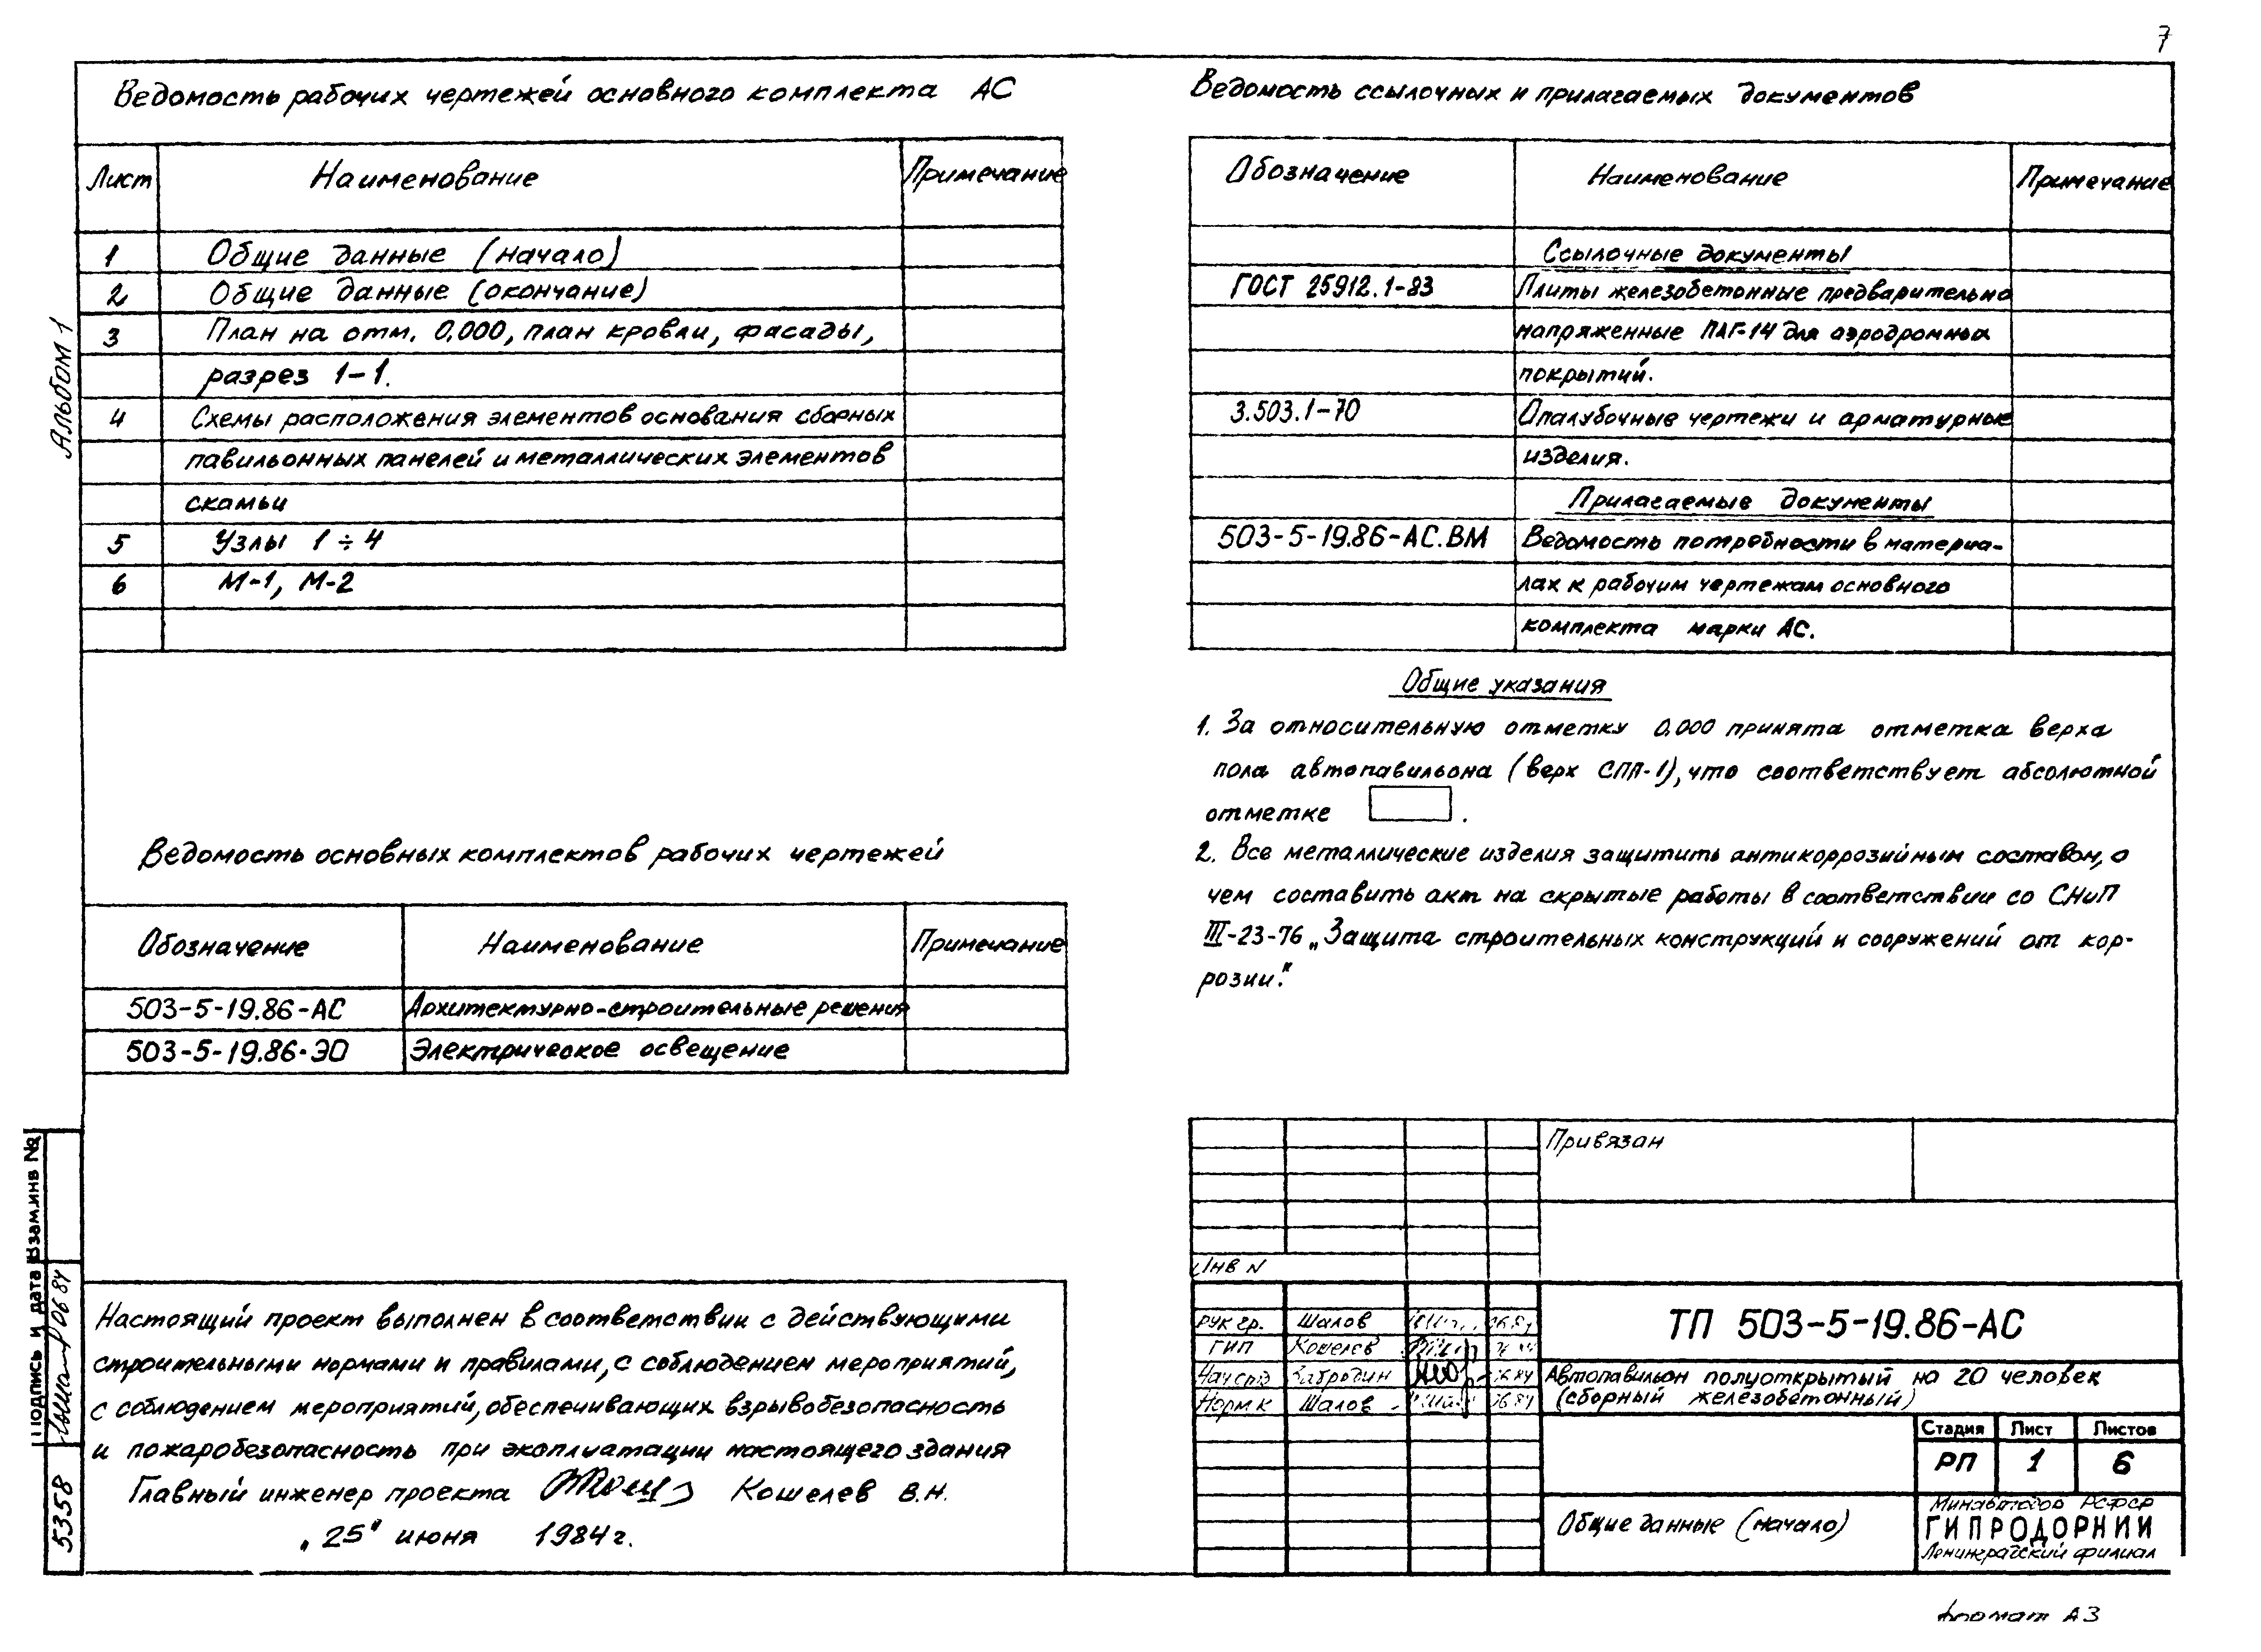 7
Альбом 1
Ведомость рабочих чертежей основного комплекта АС
Лист Наименование Примечание
1 Общие данные (начало)
2 Общие данные (окончание)
3 План на отм. 0.000, план кровли, фасады,
разрез 1-1.
4 Схемы расположения элементов основания сборных
павильонных панелей и металлических элементов
скамьи
5 Узлы 1÷4
6 М-1, М-2
Ведомость основных комплектов рабочих чертежей
Обозначение Наименование Примечание
503-5-19.86-АС Архитектурно-строительные решения
503-5-19.86-ЭО Электрическое освещение
Настоящий проект выполнен в соответствии с действующими
строительными нормами и правилами, с соблюдением мероприятий,
с соблюдением мероприятий, обеспечивающих взрывобезопасность
и пожаробезопасность при эксплуатации настоящего здания
Главный инженер проекта Кошелев В.Н.
„25" июня 1984г.
Взам.инв №
Подпись и дата
06 84
5358
Ведомость ссылочных и прилагаемых документов
Обозначение Наименование Примечание
Ссылочные документы
ГОСТ 25912.1-83 Плиты железобетонные предварительно
напряженные ПАГ-14 для аэродромных
покрытий.
3.503.1-70 Опалубочные чертежи и арматурные
изделия.
Прилагаемые документы
503-5-19.86-АС.ВМ Ведомость потребности в материа-
лах к рабочим чертежам основного
комплекта марки АС.
Общие указания
1. За относительную отметку 0.000 принята отметка верха
пола автопавильона (верх СПП-1), что соответствует абсолютной
отметке .
2. Все металлические изделия защитить антикоррозийным составом, о
чем составить акт на скрытые работы в соответствии со СНиП
III-23-76 „Защита строительных конструкций и сооружений от кор-
розии."
Привязан
Инв N
Рук гр. Шалов 06.84
ГИП Кошелев
Нач срд Забродин 06.84
Норм.к Шалов 06.84
ТП 503-5-19.86-АС
Автопавильон полуоткрытый на 20 человек
(сборный железобетонный)
Стадия Лист Листов
РП 1 6
Общие данные (начало)
Минавтодор РСФСР
ГИПРОДОРНИИ
Ленинградский филиал
Формат А3